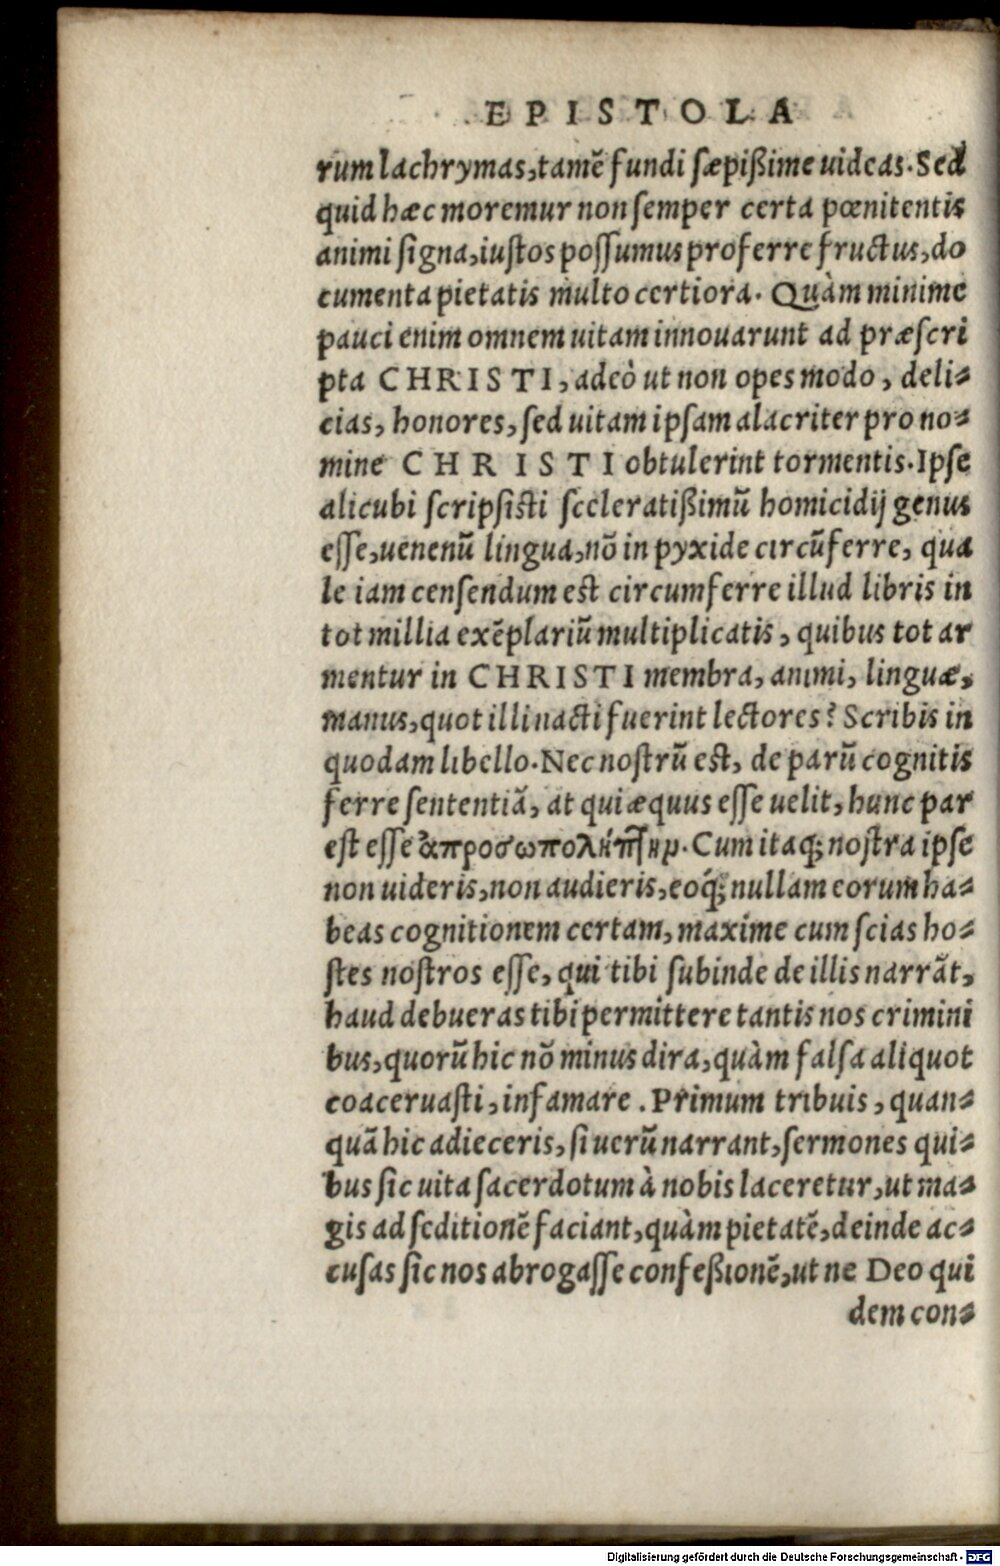 EPISTOLA
rum lachrymas, tamē fundi sæpißime uideas. Sed
quid hæc moremur non semper certa pœnitentis
animi signa, iustos possumus proferre fructus, do
cumenta pietatis multo certiora. Quàm minime
pauci enim omnem uitam innouarunt ad præscri
pta CHRISTI, adeò ut non opes modo, deli-
cias, honores, sed uitam ipsam alacriter pro no-
mine CHRISTI obtulerint tormentis. Ipse
alicubi scripsisti sceleratißimū homicidij genus
esse, uenenū lingua, nō in pyxide circūferre, qua
le iam censendum est circumferre illud libris in
tot millia exēplariū multiplicatis, quibus tot ar
mentur in CHRISTI membra, animi, linguæ,
manus, quot illi nacti fuerint lectores? Scribis in
quodam libello. Nec nostrū est, de parū cognitis
ferre sententiā, at qui æquus esse uelit, hunc par
est esse ἀπροσωπολήπτην. Cum itaq; nostra ipse
non uideris, non audieris, eoq́; nullam eorum ha-
beas cognitionem certam, maxime cum scias ho-
stes nostros esse, qui tibi subinde de illis narrāt,
haud debueras tibi permittere tantis nos crimini
bus, quorū hic nō minus dira, quàm falsa aliquot
coaceruasti, infamare. Primum tribuis, quan-
quā hic adieceris, si uerū narrant, sermones qui-
bus sic uita sacerdotum à nobis laceretur, ut ma-
gis ad seditionē faciant, quàm pietatē, deinde ac-
cusas sic nos abrogasse confeßionē, ut ne Deo qui
dem con-
Digitalisierung gefördert durch die Deutsche Forschungsgemeinschaft - DFG